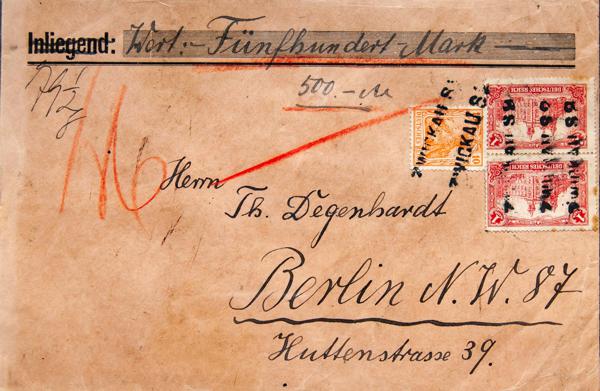 Inliegend: Wert:- Fünfhundert-Mark
500.-M
Herrn
Th. Degenhardt
Berlin N.W. 87
Huttenstrasse 39.
ZWICKAU S
ZWICKAU S
DEUTSCHES REICH
DEUTSCHES REICH